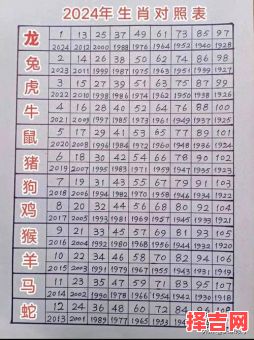 2024年生肖对照表
龙 1 13 25 37 49 61 73 85 97
2024 2012 2000 1988 1976 1964 1952 1940 1928
兔 2 14 26 38 50 62 74 86 98
2023 2011 1999 1987 1975 1963 1951 1939 1927
虎 3 15 27 39 51 63 75 87 99
2022 2010 1998 1986 1974 1962 1950 1938 1926
牛 4 16 28 40 52 64 76 88 100
2021 2009 1997 1985 1973 1961 1949 1937 1925
鼠 5 17 29 41 53 65 77 89 101
2020 2008 1996 1984 1972 1960 1948 1936 1924
猪 6 18 30 42 54 66 78 90 102
2019 2007 1995 1983 1971 1959 1947 1935 1923
狗 7 19 31 43 55 67 79 91 103
2018 2006 1994 1982 1970 1958 1946 1934 1922
鸡 8 20 32 44 56 68 80 92 104
2017 2005 1993 1981 1969 1957 1945 1933 1921
猴 9 21 33 45 57 69 81 93 105
2016 2004 1992 1980 1968 1956 1944 1932 1920
羊 10 22 34 46 58 70 82 94 106
2015 2003 1991 1979 1967 1955 1943 1931 1919
马 11 23 35 47 59 71 83 95 107
2014 2002 1990 1978 1966 1954 1942 1930 1918
蛇 12 24 36 48 60 72 84
2013 2001 1989 1977 1965 1953
择吉网